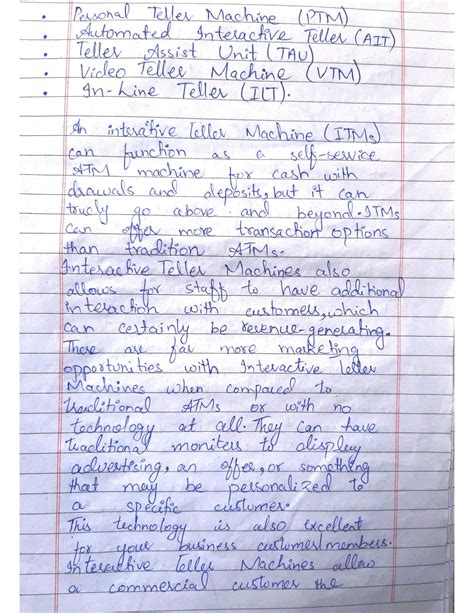 • Personal Teller Machine (PTM)
• Automated Interactive Teller (AIT)
• Teller Assist Unit (TAU)
• Video Teller Machine (VTM)
• In-Line Teller (ILT).
An interative Teller Machine (ITMs)
can function as a self-service
ATM machine for cash with
drawals and deposits, but it can
trucly go above and beyond. ITMs
can offer more transaction options
than tradition ATMs.
Interactive Teller Machines also
allows for staff to have additional
interaction with customers, which
can certainly be revenue-generating.
There are far more marketing
opportunities with Interactive Teller
Machines when compared to
traditional ATMs or with no
technology at all. They can have
traditional moniters to display
advertising, an offer, or something
that may be personalized to
a specific customer.
This technology is also excellent
for your business customer/members.
Interactive Teller Machines allow
a commercial customer the